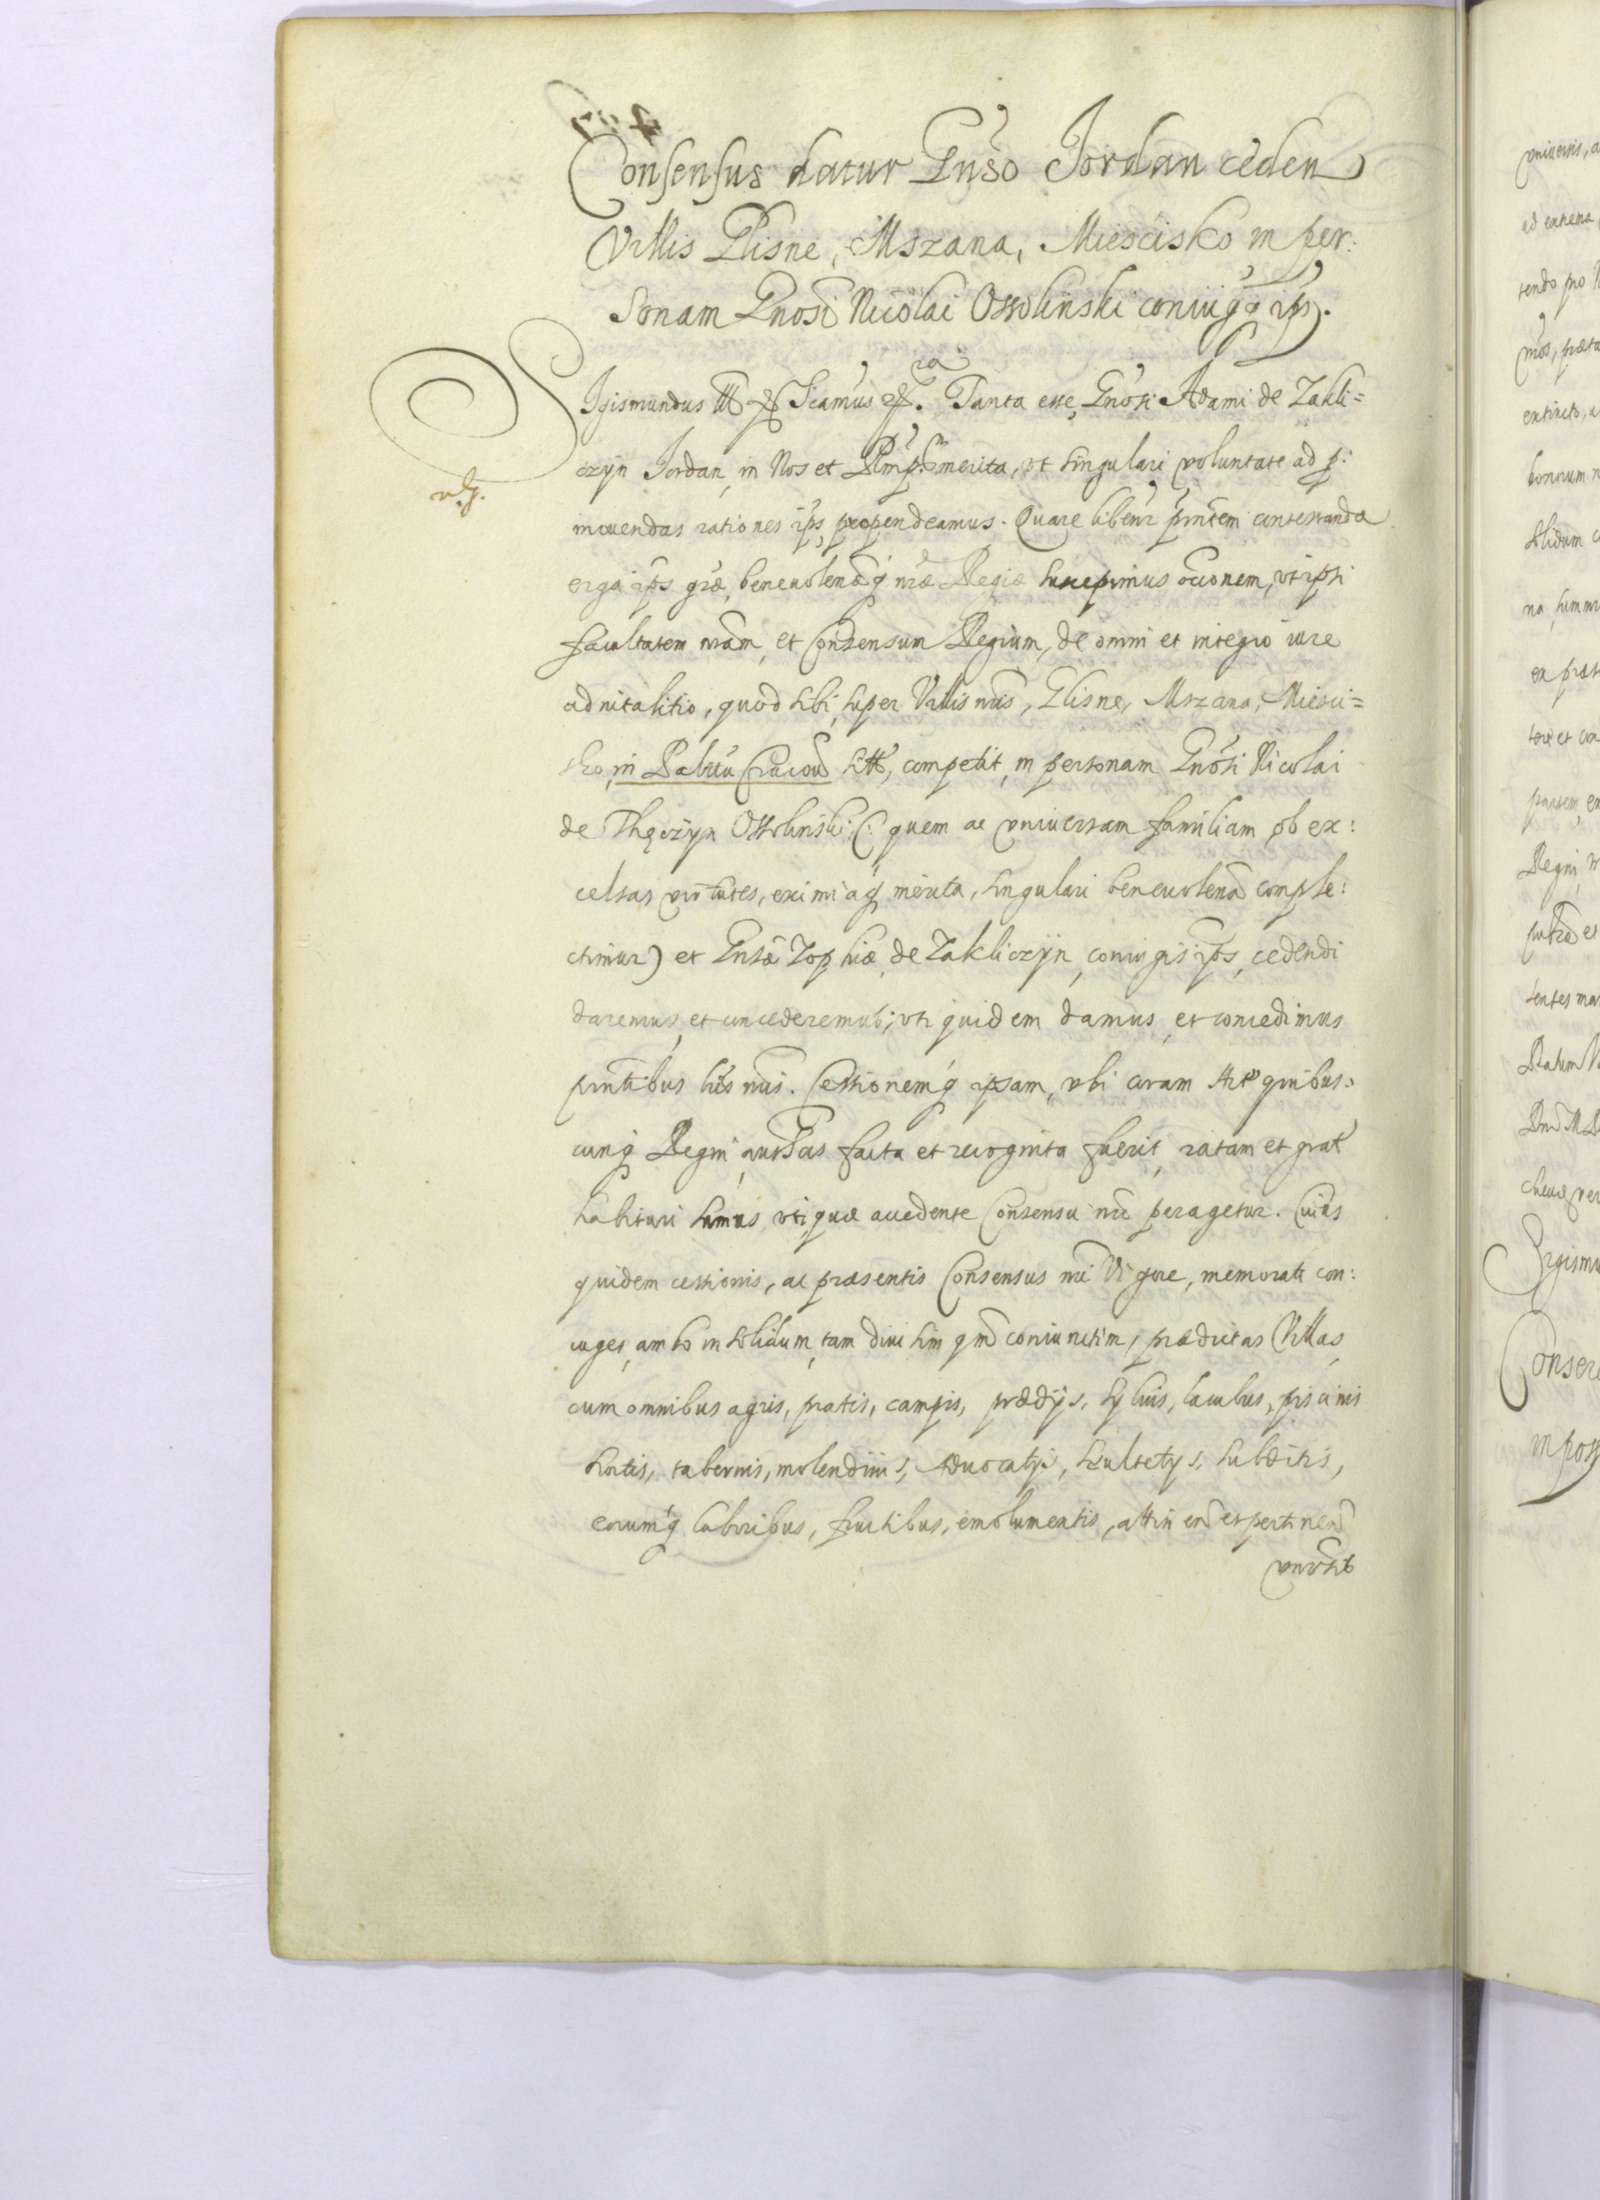 Consensus datur Gnso Jordan ceden
Villis Glisne, Mszana, Mieścisko in per:
sonam Gnosi Nicolai Ossoliński coniugq ips.
Sigismundus III etc Sicamus etc. Tanta esse, Gnosi Adami de Zakli=
czyn Jordan, in Nos et Rempb. merita, ut singulari voluntate ad p:
mouendas rationes ips, propendeamus. Quare libenr pntem contestanda
erga ips græ, beneuolenæq nræ Regiæ suscepimus occonem, ut ipsi
facultatem nram, et Consensum Regium, de omni et integro iure
aduitalitio, quod sibi, super Villis nris, Glisne, Mszana, Miesci=
sko, in Palatu Cracov sitis, competit, in personam Gnosi Nicolai
de Thęczyn Ossolinski (: quem ac vniuersam familiam ob ex:
celsas virtutes, eximiaq merita, singulari beneuolena comple:
ctimur) et Gnsæ Zophiæ de Zakliczyn, coniugis ips, cedendi
daremus, et concederemus; uti quidem damus, et concedimus
pntibus lris nris. Cessionemq ipsam, ubi coram Actis quibus:
cunq Regni authcis facta et recognita fuerit, ratam et grat
habituri sumus, utique accedente Consensu nro peragetur. Cuius
quidem cessionis, ac præsentis Consensus nri Vigore, memorati con:
iuges, ambo in solidum, tam diui sim qm coniunctim, prædictas Villas,
cum omnibus agris, pratis, campis, prædijs, syluis, lacubus, piscinis
hortis, tabernis, molendinis, Aduocatijs, scultetijs, subditis,
eorumq laboribus, fructibus, emolumentis, attinen et pertinen
vniusis